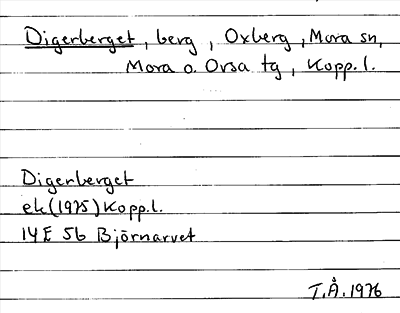 Digerberget, berg, Oxberg, Mora sn,
Mora o. Orsa tg, Kopp.l.
Digerberget
ek(1975)Kopp.l.
14E 5b Björnarvet
T.Å.1976